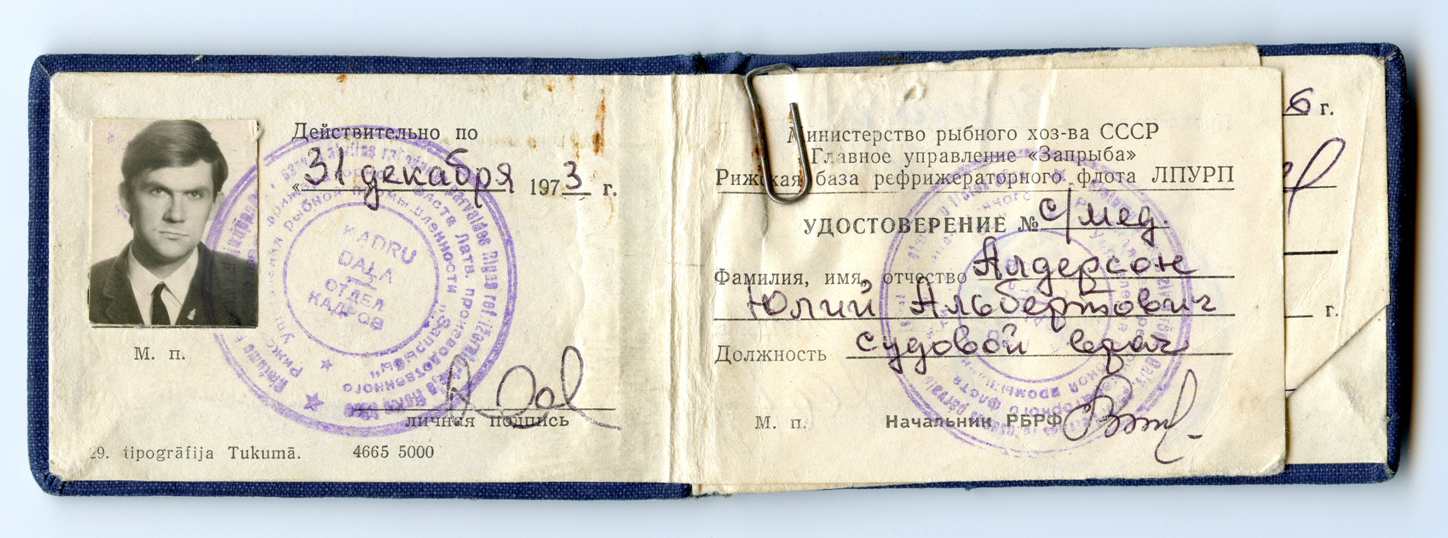 Действительно по
«31 декабря 1973 г.
KADRU
DAĻA
ОТДЕЛ
КАДРОВ
М. п.
личная подпись
29. tipogrāfija Tukumā. 4665 5000
Министерство рыбного хоз-ва СССР
Главное управление «Запрыба»
Рижская база рефрижераторного флота ЛПУРП
УДОСТОВЕРЕНИЕ № с/мед.
Фамилия, имя, отчество Алдерсон
Юлий Альбертович
Должность судовой врач
М. п. Начальник РБРФ
6 г.
г.